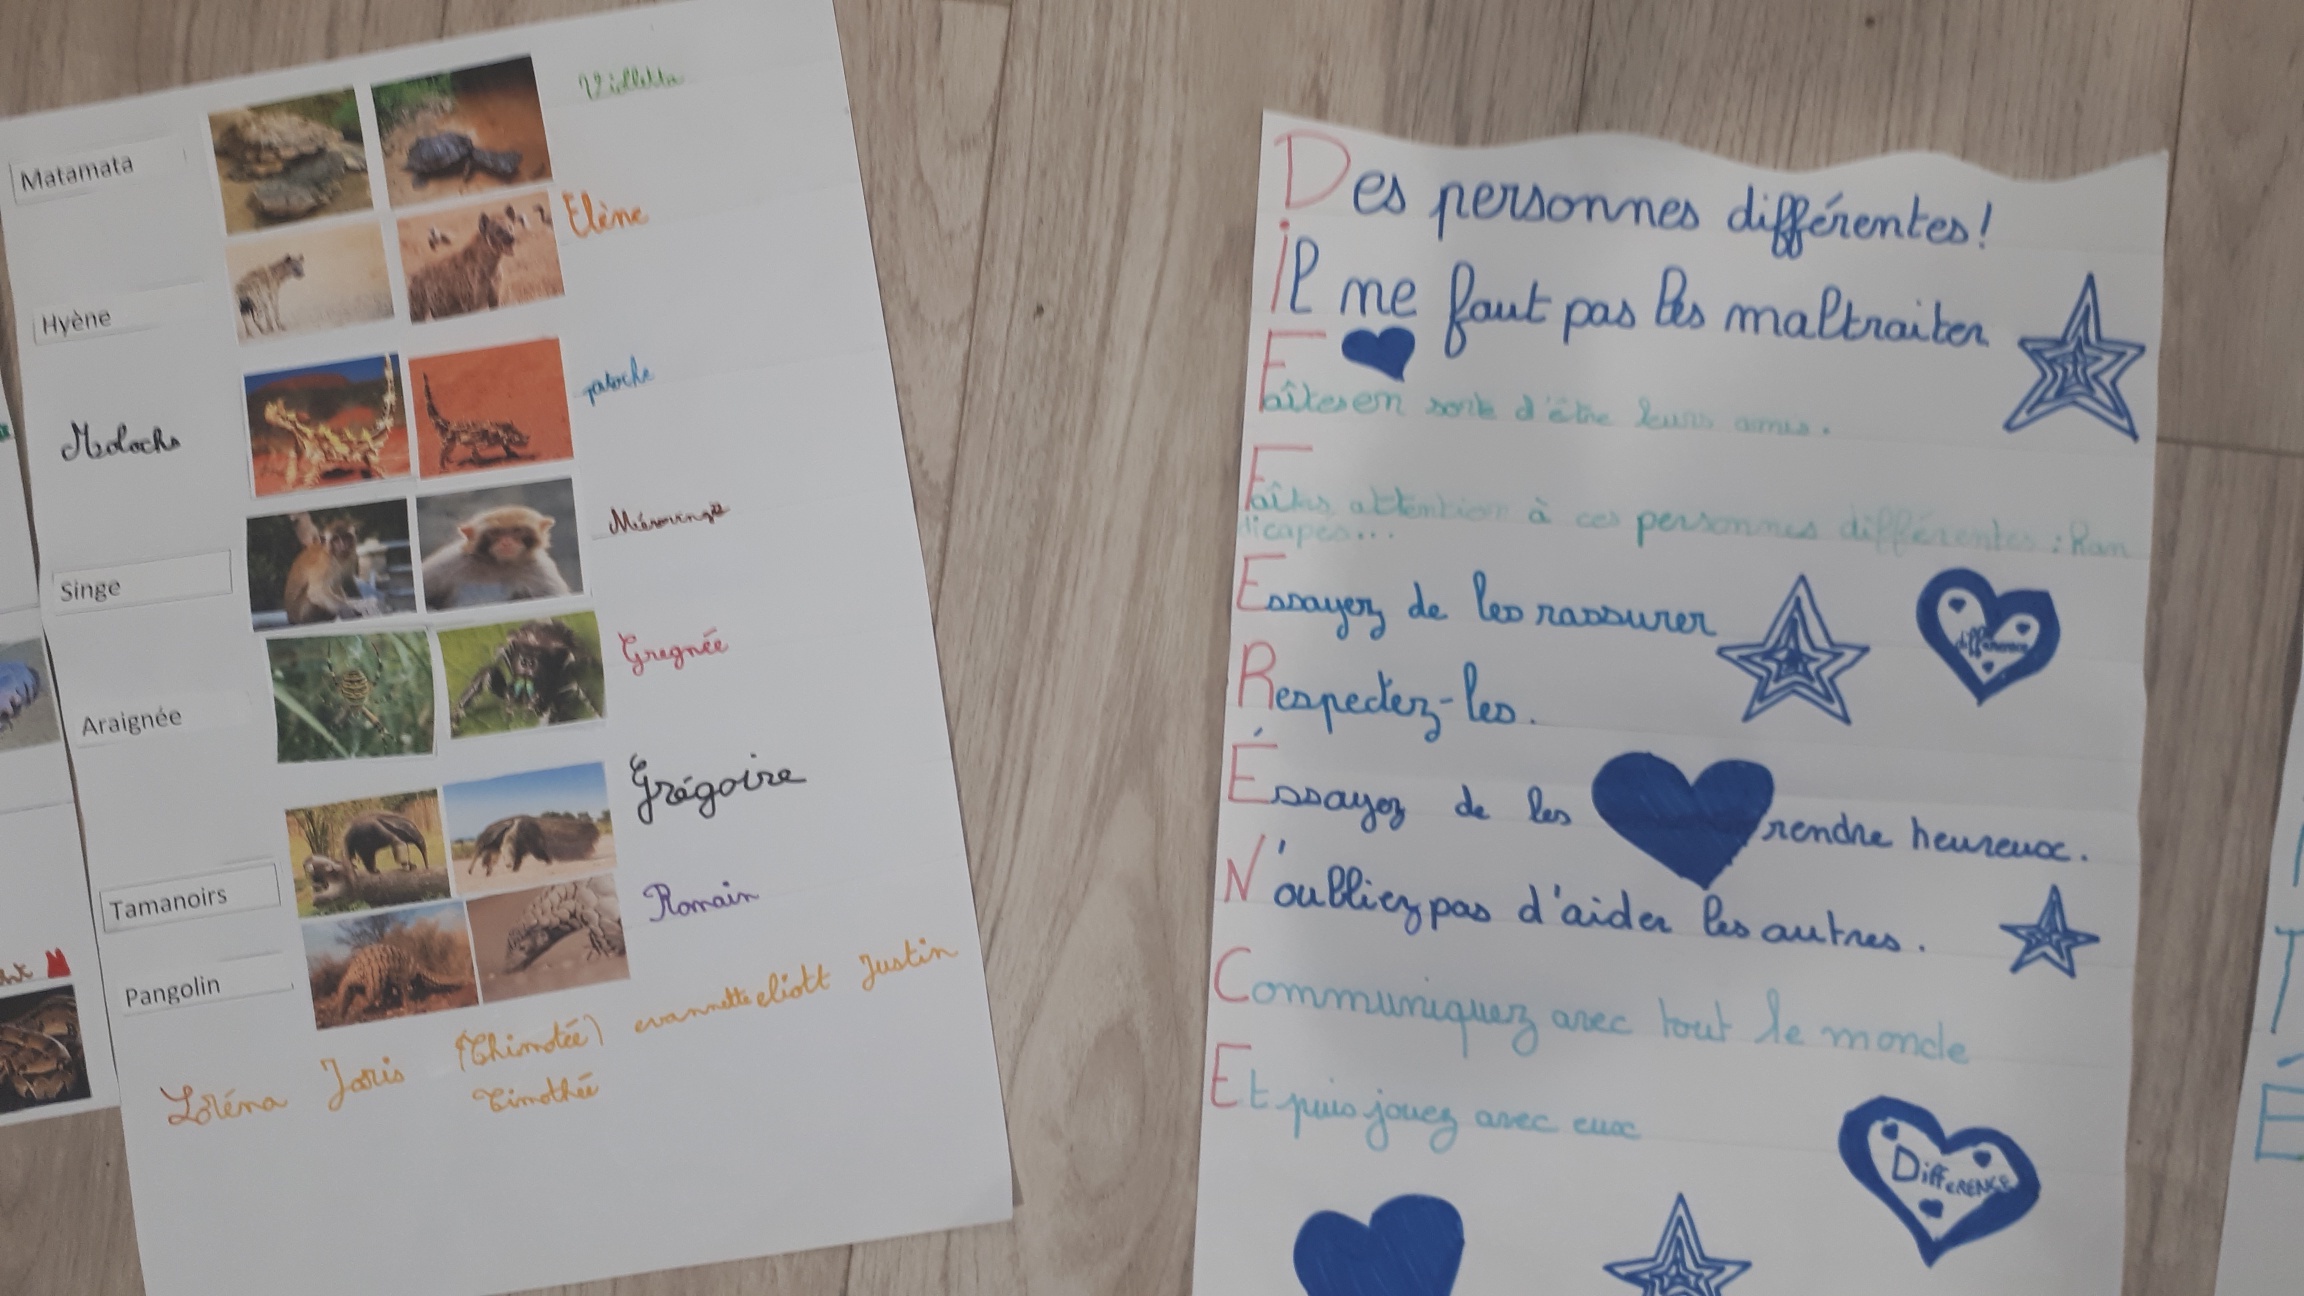 Matamata
Violetta
Hyène
Elène
Molochs
patoche
Singe
Araignée
Gregnée
Tamanoirs
Grégoire
Pangolin
Romain
Loréna Joris (Thimotée) evannette eliott Justin
Timothée
Des personnes différentes!
il ne faut pas les maltraiter
Faîtes en sorte d'être leurs amis.
Faîtes attention à ces personnes différentes : han
dicapés...
Essayez de les rassurer
différence
Respectez-les.
Éssayez de les rendre heureux.
N'oubliez pas d'aider les autres.
Communiquez avec tout le monde
Et puis jouez avec eux
DiffERENCE